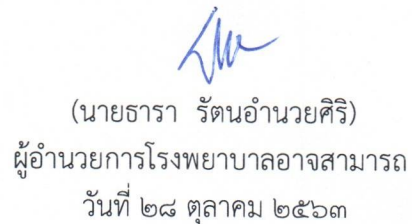 (นายธารา รัตนอำนวยศิริ)
ผู้อำนวยการโรงพยาบาลอาจสามารถ
วันที่ ๒๘ ตุลาคม ๒๕๖๓